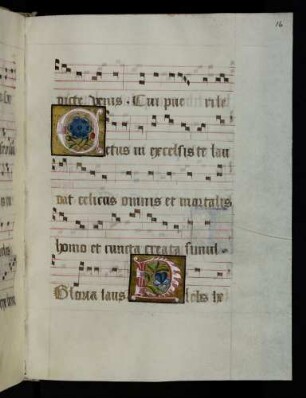 16
dicte venis. Cui puerile
Cetus in excelsis te lau
dat celicus omnis et mortalis
homo et cuncta creata simul.
Gloria laus Plebs he